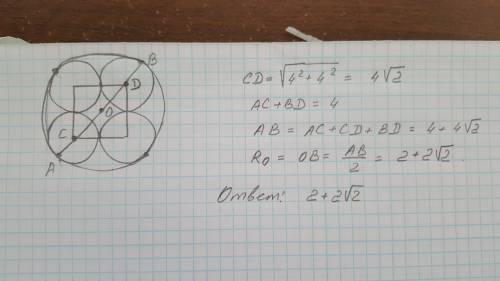 B
D
O
C
A
CD = √4² + 4² = 4√2
AC + BD = 4
AB = AC + CD + BD = 4 + 4√2
R₀ = OB = AB/2 = 2 + 2√2.
Ответ: 2 + 2√2